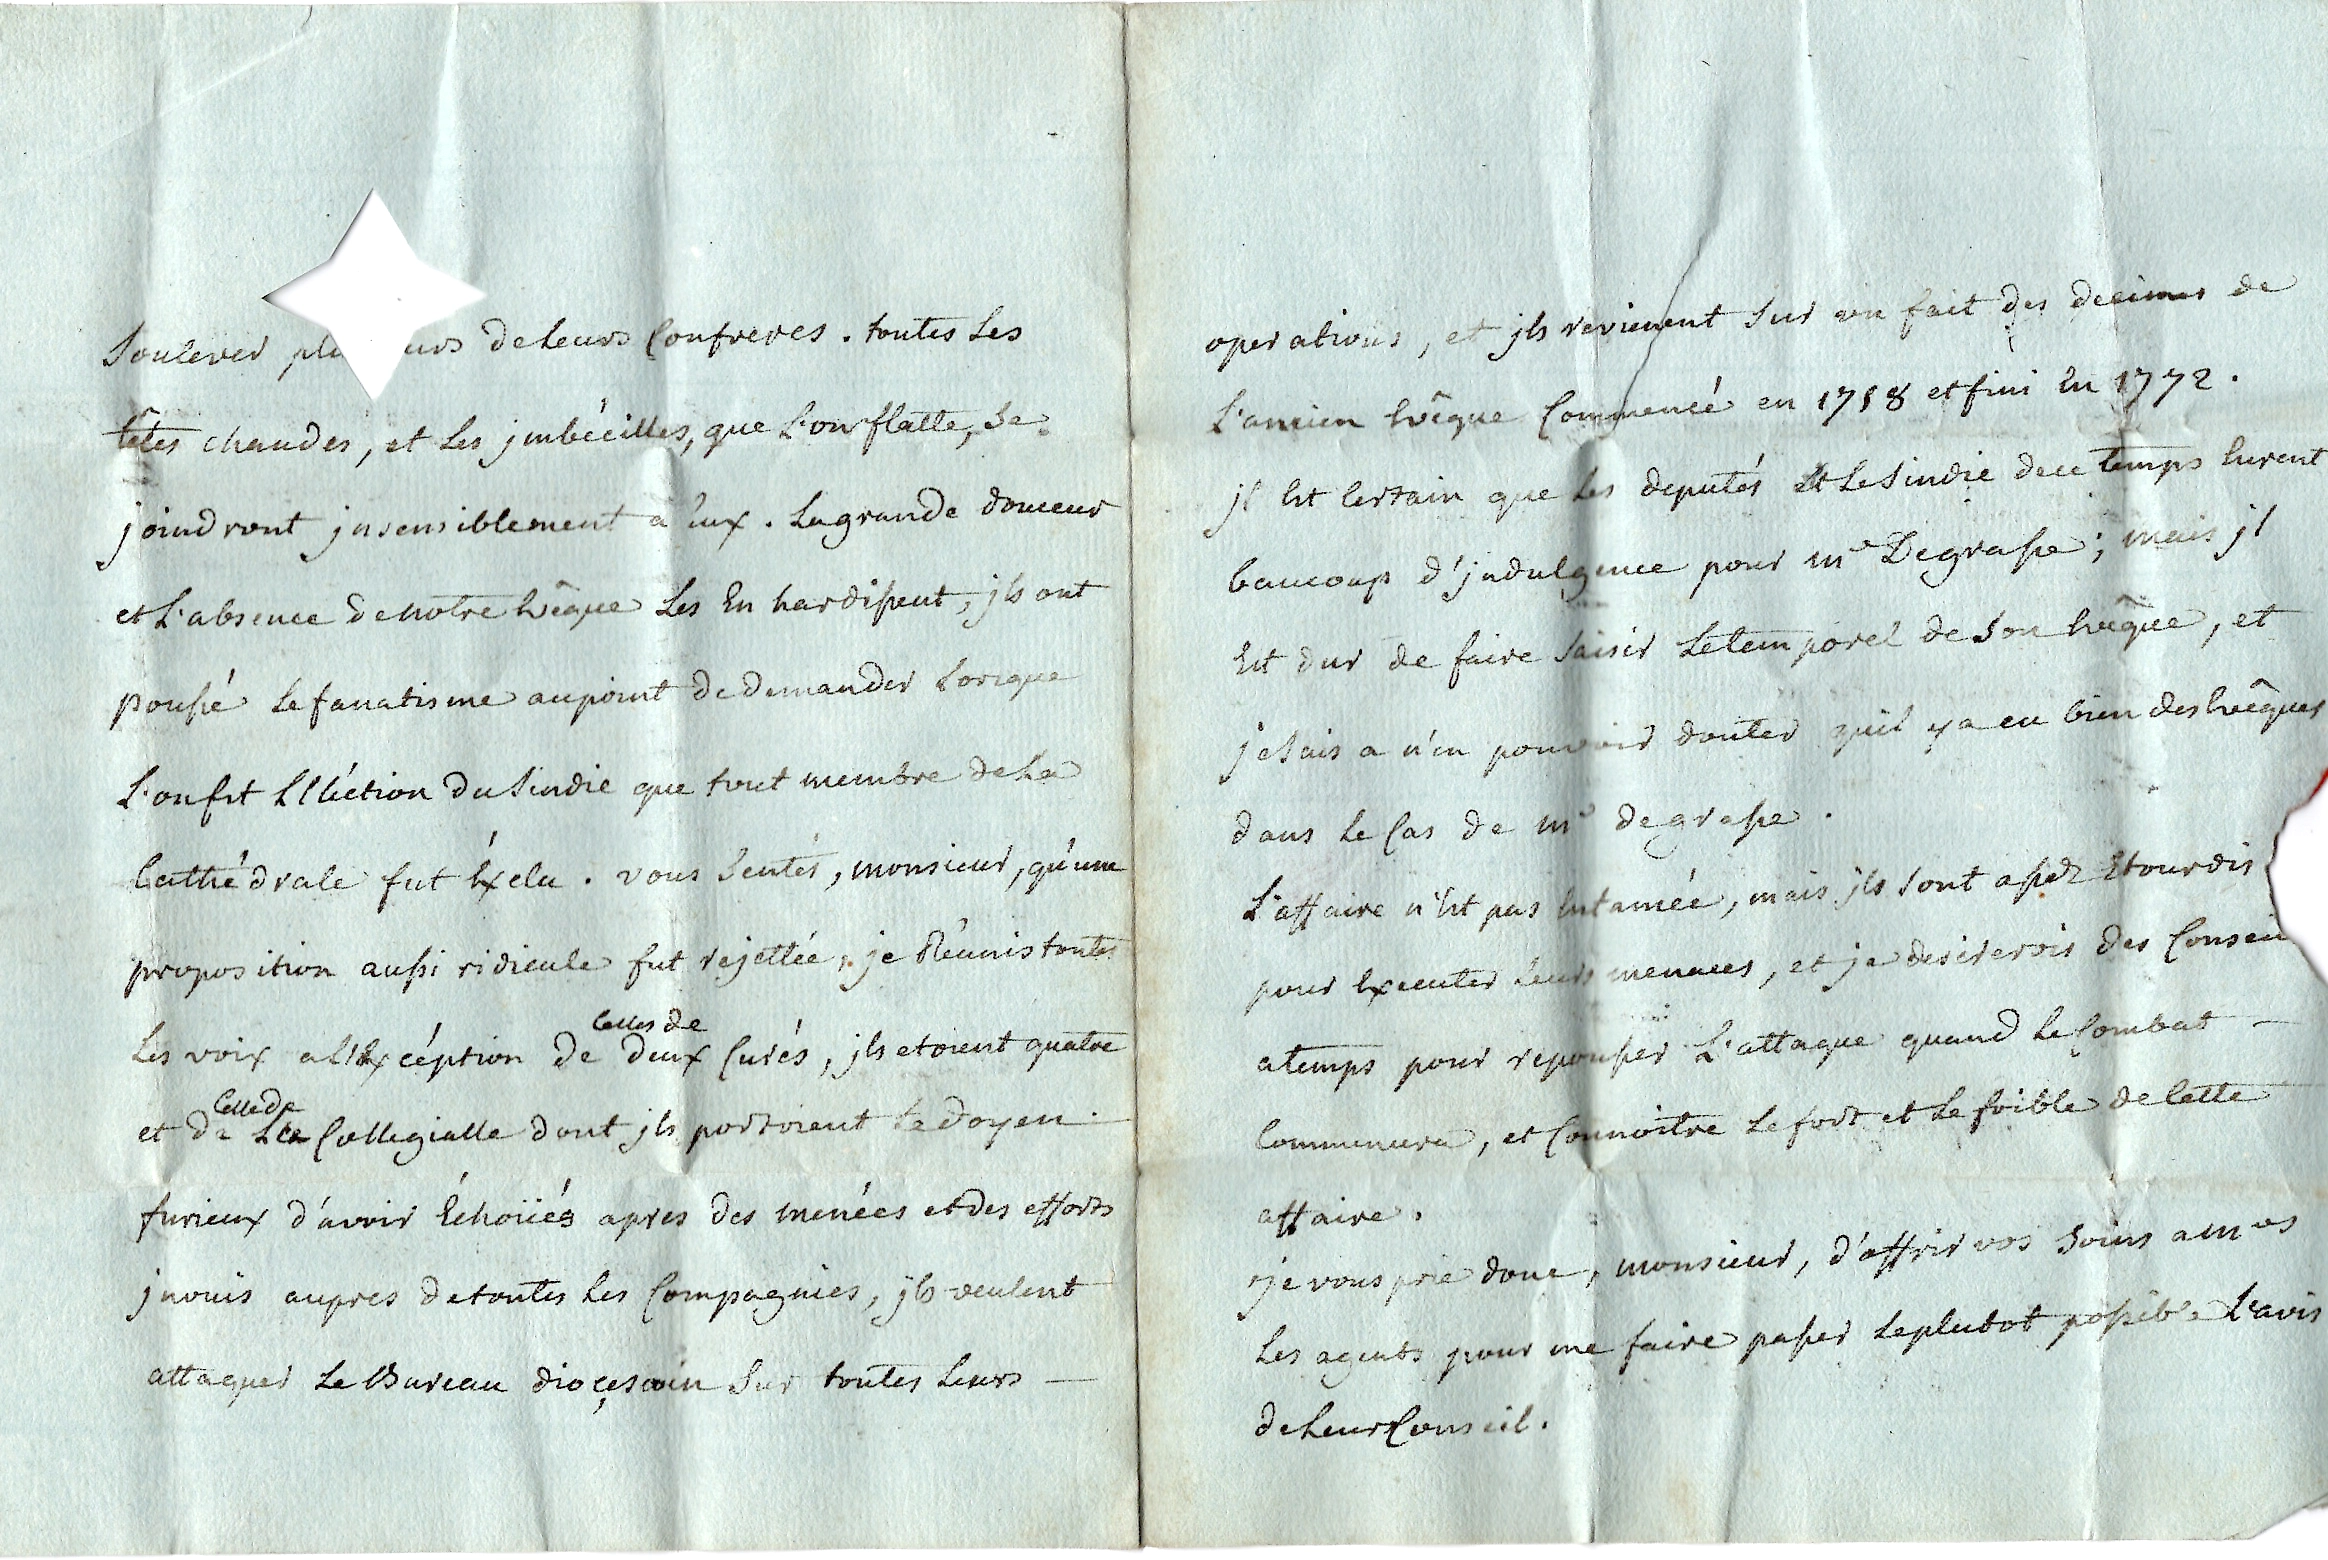 Soulever pl urs de Leurs Confreres. toutes Les
têtes chaudes, et Les jmbécilles, que L'on flatte, Se
joindront jnsensiblement a Eux. La grande douceur
et L'absence de notre Evêque Les En hardissent, jls ont
poussé Le fanatisme au point de demander Lorsque
L'on fit L'Eléction du Sindic que tout membre de La
Cathédrale fut Exclu. vous Sentés, monsieur, qu'une
proposition aussi ridicule fut rejettée, je Réunis toutes
Les voix a L'Excéption de Celles de deux Curés, jls etoient quatre
et de Celle de La Collegialle dont jls portoient Le doyen.
furieux d'avoir Echoüés apres des menées et des efforts
jnoüis aupres de toutes Les Compagnies, jls veulent
attaquer Le Bureau dioçesain Sur toutes Leurs
operations, et jls revienent Sur un fait des decimes de
L'ancien Evêque Commencé en 1758 et fini En 1772.
jl Est Certain que Les deputés Et Le Sindic de ce temps Eurent
baucoup d'jndulgence pour mr Degrasse; mais jl
Est dur de faire Saisir Le temporel de Son Evêque, et
je Sais a n'en pouvoir douter qu'il y a eu bien des Evêques
dans Le Cas de mr degrasse.
L'affaire n'Est pas Entamée, mais jls Sont assez Etourdis
pour Executer Leurs menaces, et je desirerois des Conseil
a temps pour repousser L'attaque quand Le Combat
Commencera, et Connoitre Le fort et Le foible de Cette
affaire.
je vous prie donc, monsieur, d'offrir vos Soins a mrs
Les agents pour me faire passer Le plutot possible L'avis
de Leur Conseil.